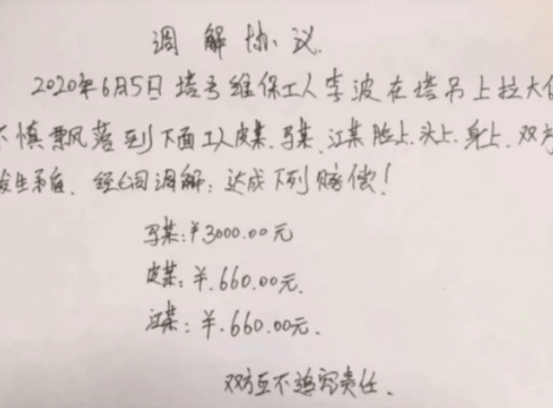 调解协议
2020年6月5日塔吊维保工人李波在塔吊上拉大
不慎飘落到下面工人皮某、马某、江某脸上.头上.身上.双方
发生矛盾.经公司调解:达成下列赔偿!
马某:¥3000.00元
皮某:¥.660.00元.
江某:¥.660.00元.
双方互不追究责任.